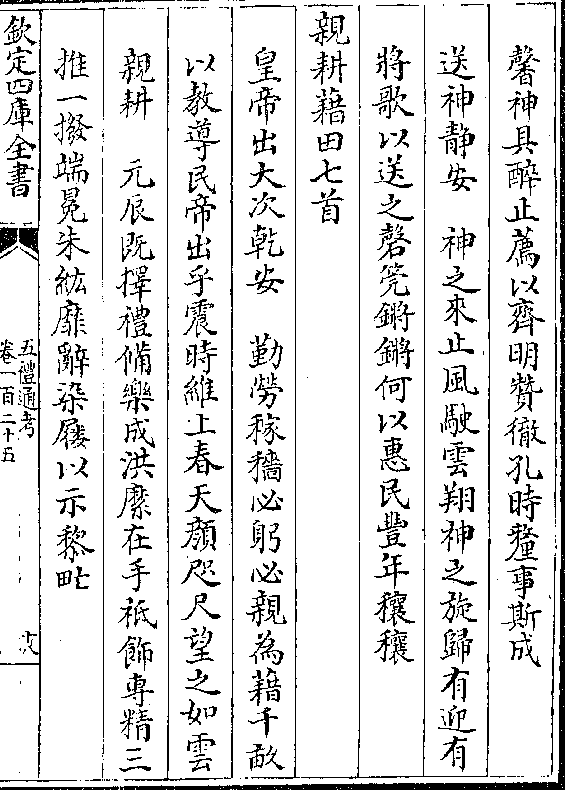 馨神具醉止薦以齊明贊徹孔時釐事斯成
送神静安　神之來止風駛雲翔神之旋歸有迎有
將歌以送之磬筦鏘鏘何以惠民豐年穰穰
親耕藉田七首
皇帝出大次乾安　勤勞稼穡必躬必親為藉千畝
以教導民帝出乎震時維上春天顔咫尺望之如雲
親耕　元辰既擇禮備樂成洪縻在手祇飾專精三
推一撥端冕朱紘靡辭染屨以示黎甿
欽定四庫全書
五禮通考
卷一百二十五